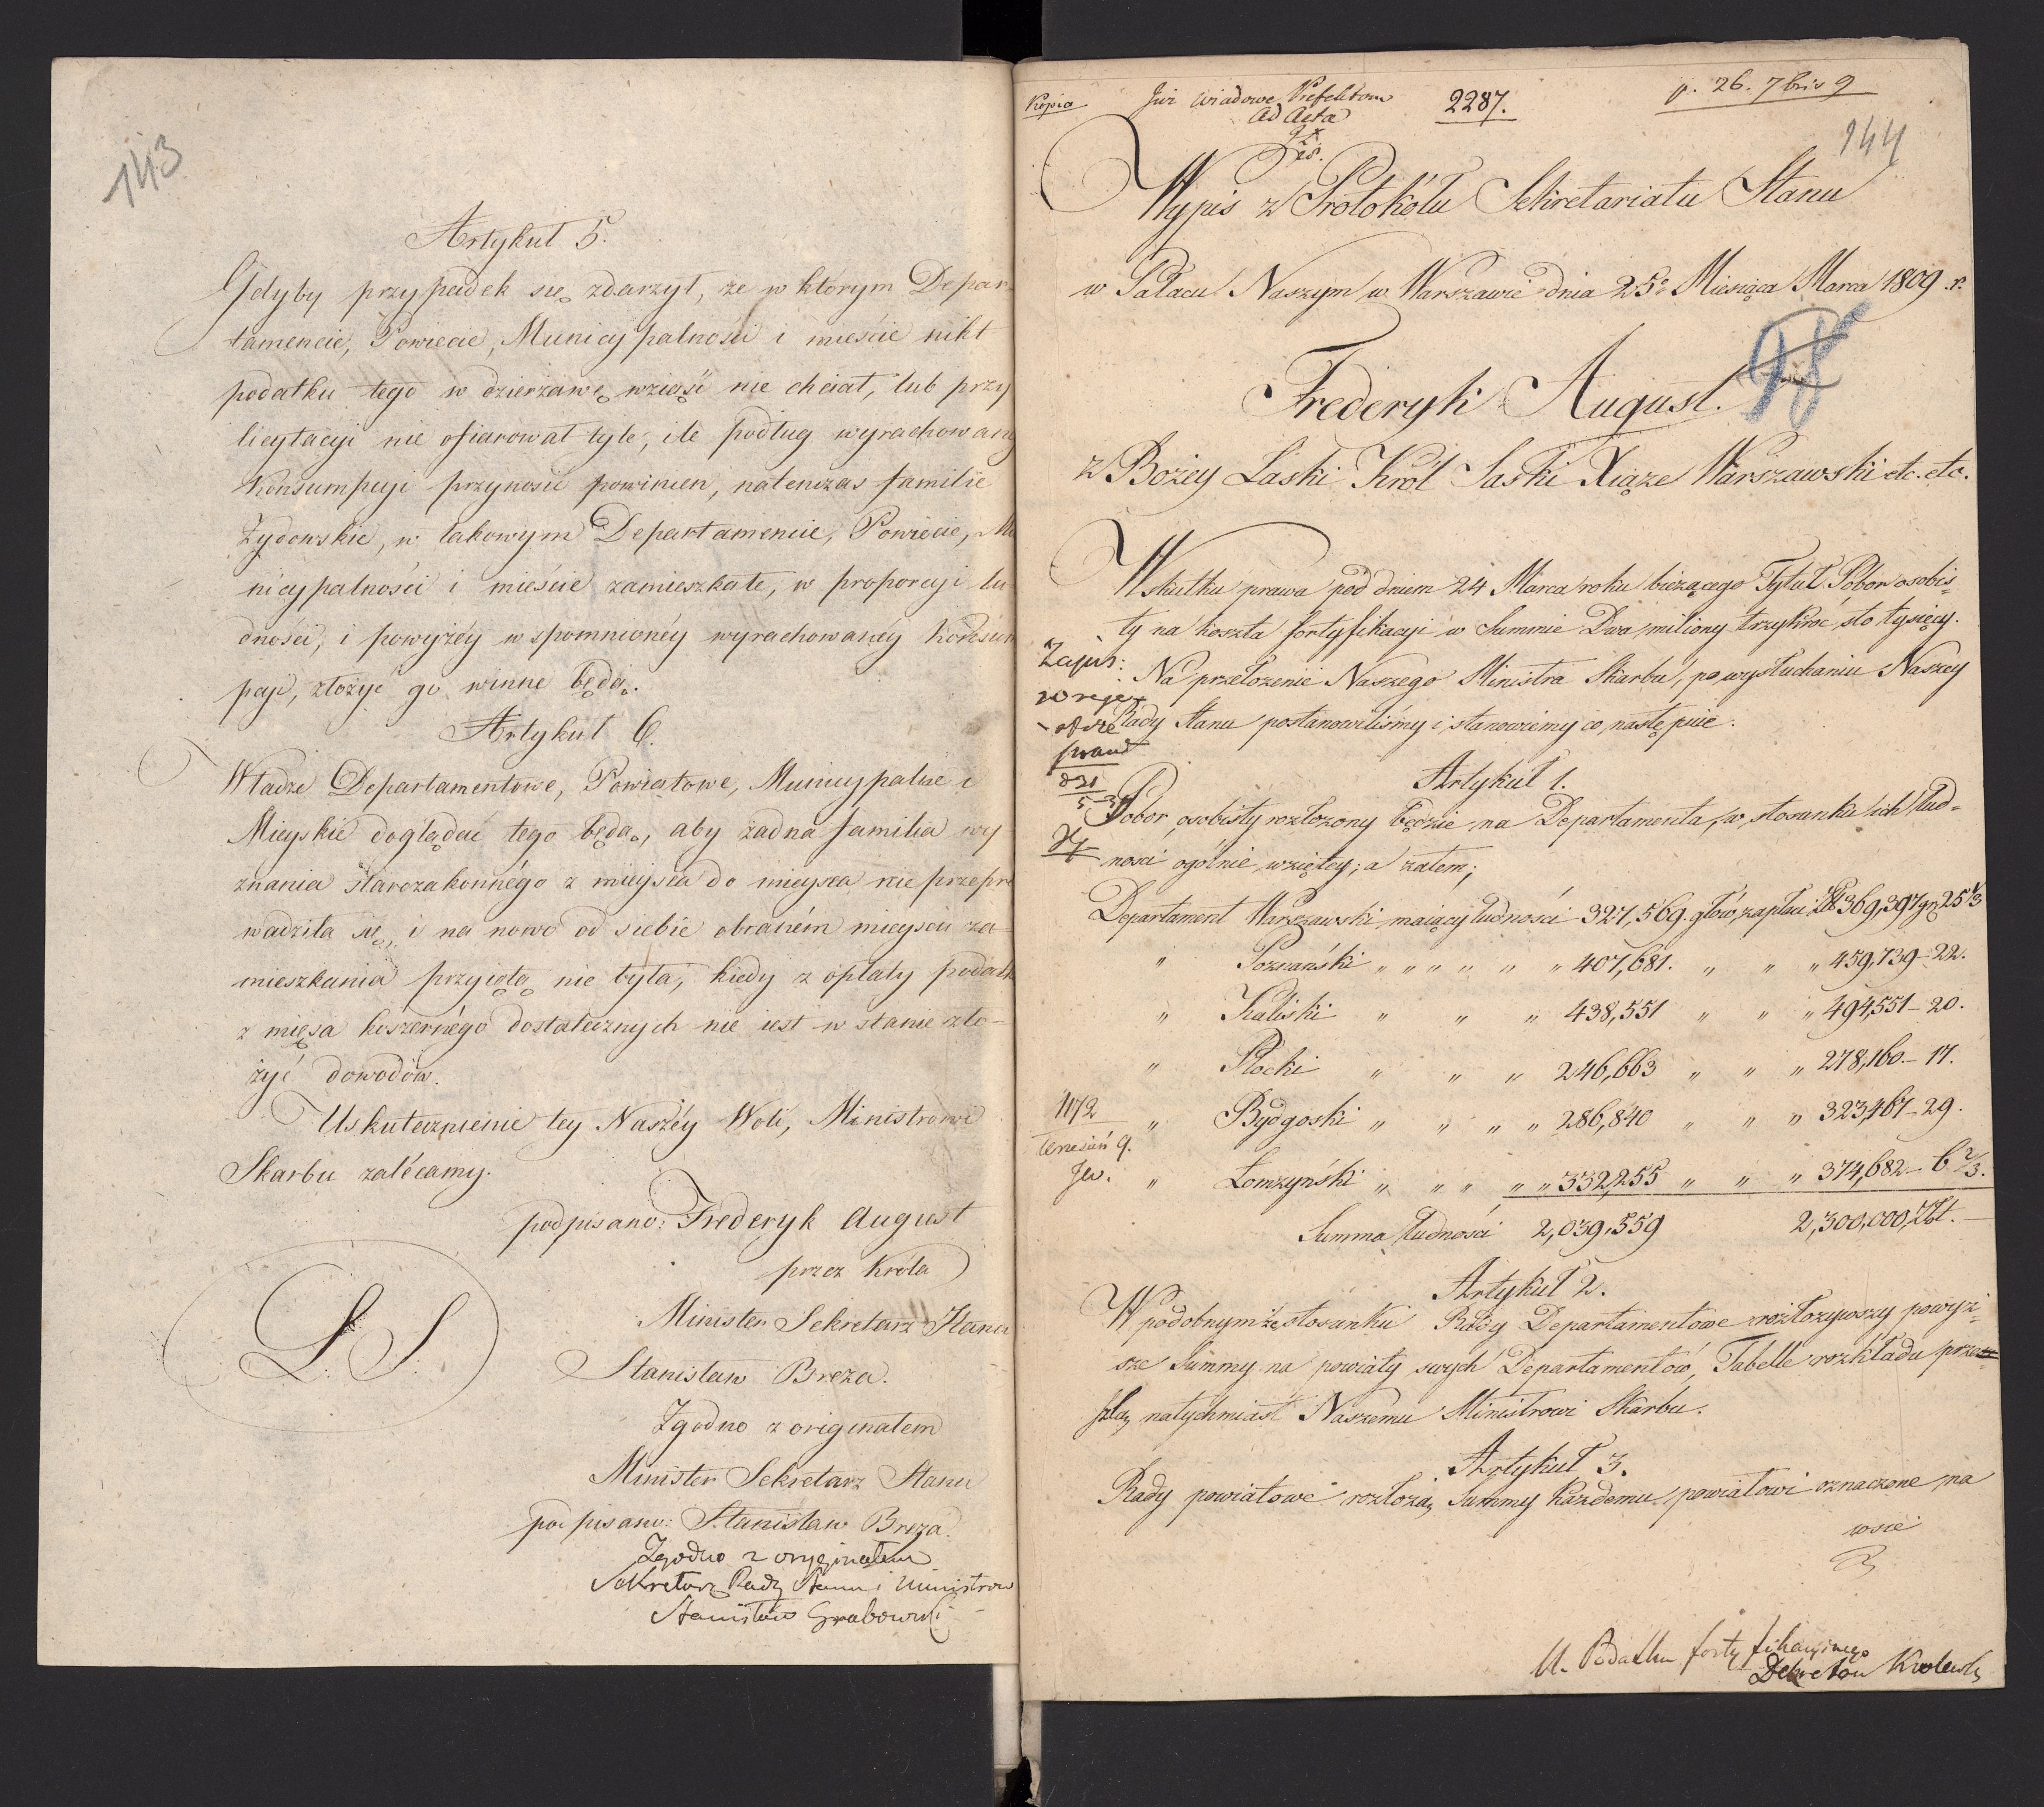 143
Artykuł 5.
Gdyby przypadek się zdarzył, że w którym Depar
tamencie, Powiecie, Municypalności i mieście nikt
podatku tego w dzierżawę wziąść nie chciał, lub przy
licytacyi nie ofiarował tyle, ile podług wyrachowaney
Konsumpcyi przynosić powinien, natenczas familie
Żydowskie, w takowym Departamencie, Powiecie, Mu
nicypalności i mieście zamieszkałe, w proporcyi lu
dności, i powyżéy wspomnionéy wyrachowanéy Konsum
pcyi, złożyć go winne będą.
Artykuł 6.
Władze Departamentowe, Powiatowe, Municypalne i
Mieyskie doglądać tego będą, aby żadna familia wy
znania starozakonnégo z mieysca do mieysca nie przepro
wadziła się, i na nowo od siebie obraném mieyscu za-
mieszkania przyiętą nie była, kiedy z opłaty podatk
z mięsa koszernégo dostatecznych nie iest w stanie zło-
żyć dowodów.
Uskutecznienie tey Naszéy Woli, Ministrowi
Skarbu zalécamy.
podpisano: Frederyk August
przez Króla
Minister Sekretarz Stanu
L. S.
Stanisław Breza.
Zgodno z originałem
Minister Sekretarz Stanu
podpisano: Stanisław Breza.
Zgodno z oryginałem
Sekretarz Rady Stanu i Ministrow
Stanisław Grabowski
Kopia
Już wiadome Prefektom
Ad Acta
2287.
p. 26. 7bris 9
144
Wypis z Protokółu Sekretariatu Stanu
w Pałacu Naszym w Warszawie dnia 25º Miesiąca Marca 1809 r.
98
Frederyk August.
z Bożey Łaski Król Saski Xiąże Warszawski etc. etc.
W skutku prawa pod dniem 24 Marca roku bieżącego Tytuł Pobór osobis=
ty na koszta fortyfikacyi w Summie Dwa miliony trzykroć sto tysięcy.
Na przełożenie Naszego Ministra Skarbu, po wysłuchaniu Naszey
Rady Stanu postanowiliśmy i stanowiemy co następuie.
Artykuł 1.
Pobor osobisty rozłożony będzie na Departamenta, w stosunku ich lud=
ności ogólnie wziętey; a zatem;
Departament Warszawski maiący ludności 327,569. głów, zapłaci Zł 369,397 gr 25 1/3
" Poznański " " " " " " 407,681. " " " 459,739-22.
" Kaliski " " " 438,551 " " " 494,551-20.
" Płocki " " " 246,663 " " " 278,160.-17.
1172
" Bydgoski " " " " 286,840 " " " 323,467-29.
" Łomżyński " " " " " 332,255 " " " 374,682-6 2/3.
Summa Ludności 2,039,559 2,300,000, Zł.-
Artykuł 2.
W podobnymże stosunku Rady Departamentowe rozłożywszy powyż=
sze Summy na powiaty swych Departamentów, Tabelle rozkładu prze=
szlą natychmiast Naszemu Ministrowi Skarbu.
Artykuł 3.
Rady powiatowe rozłożą Summy każdemu powiatowi oznaczone na
wsie
fortyfikacyinego